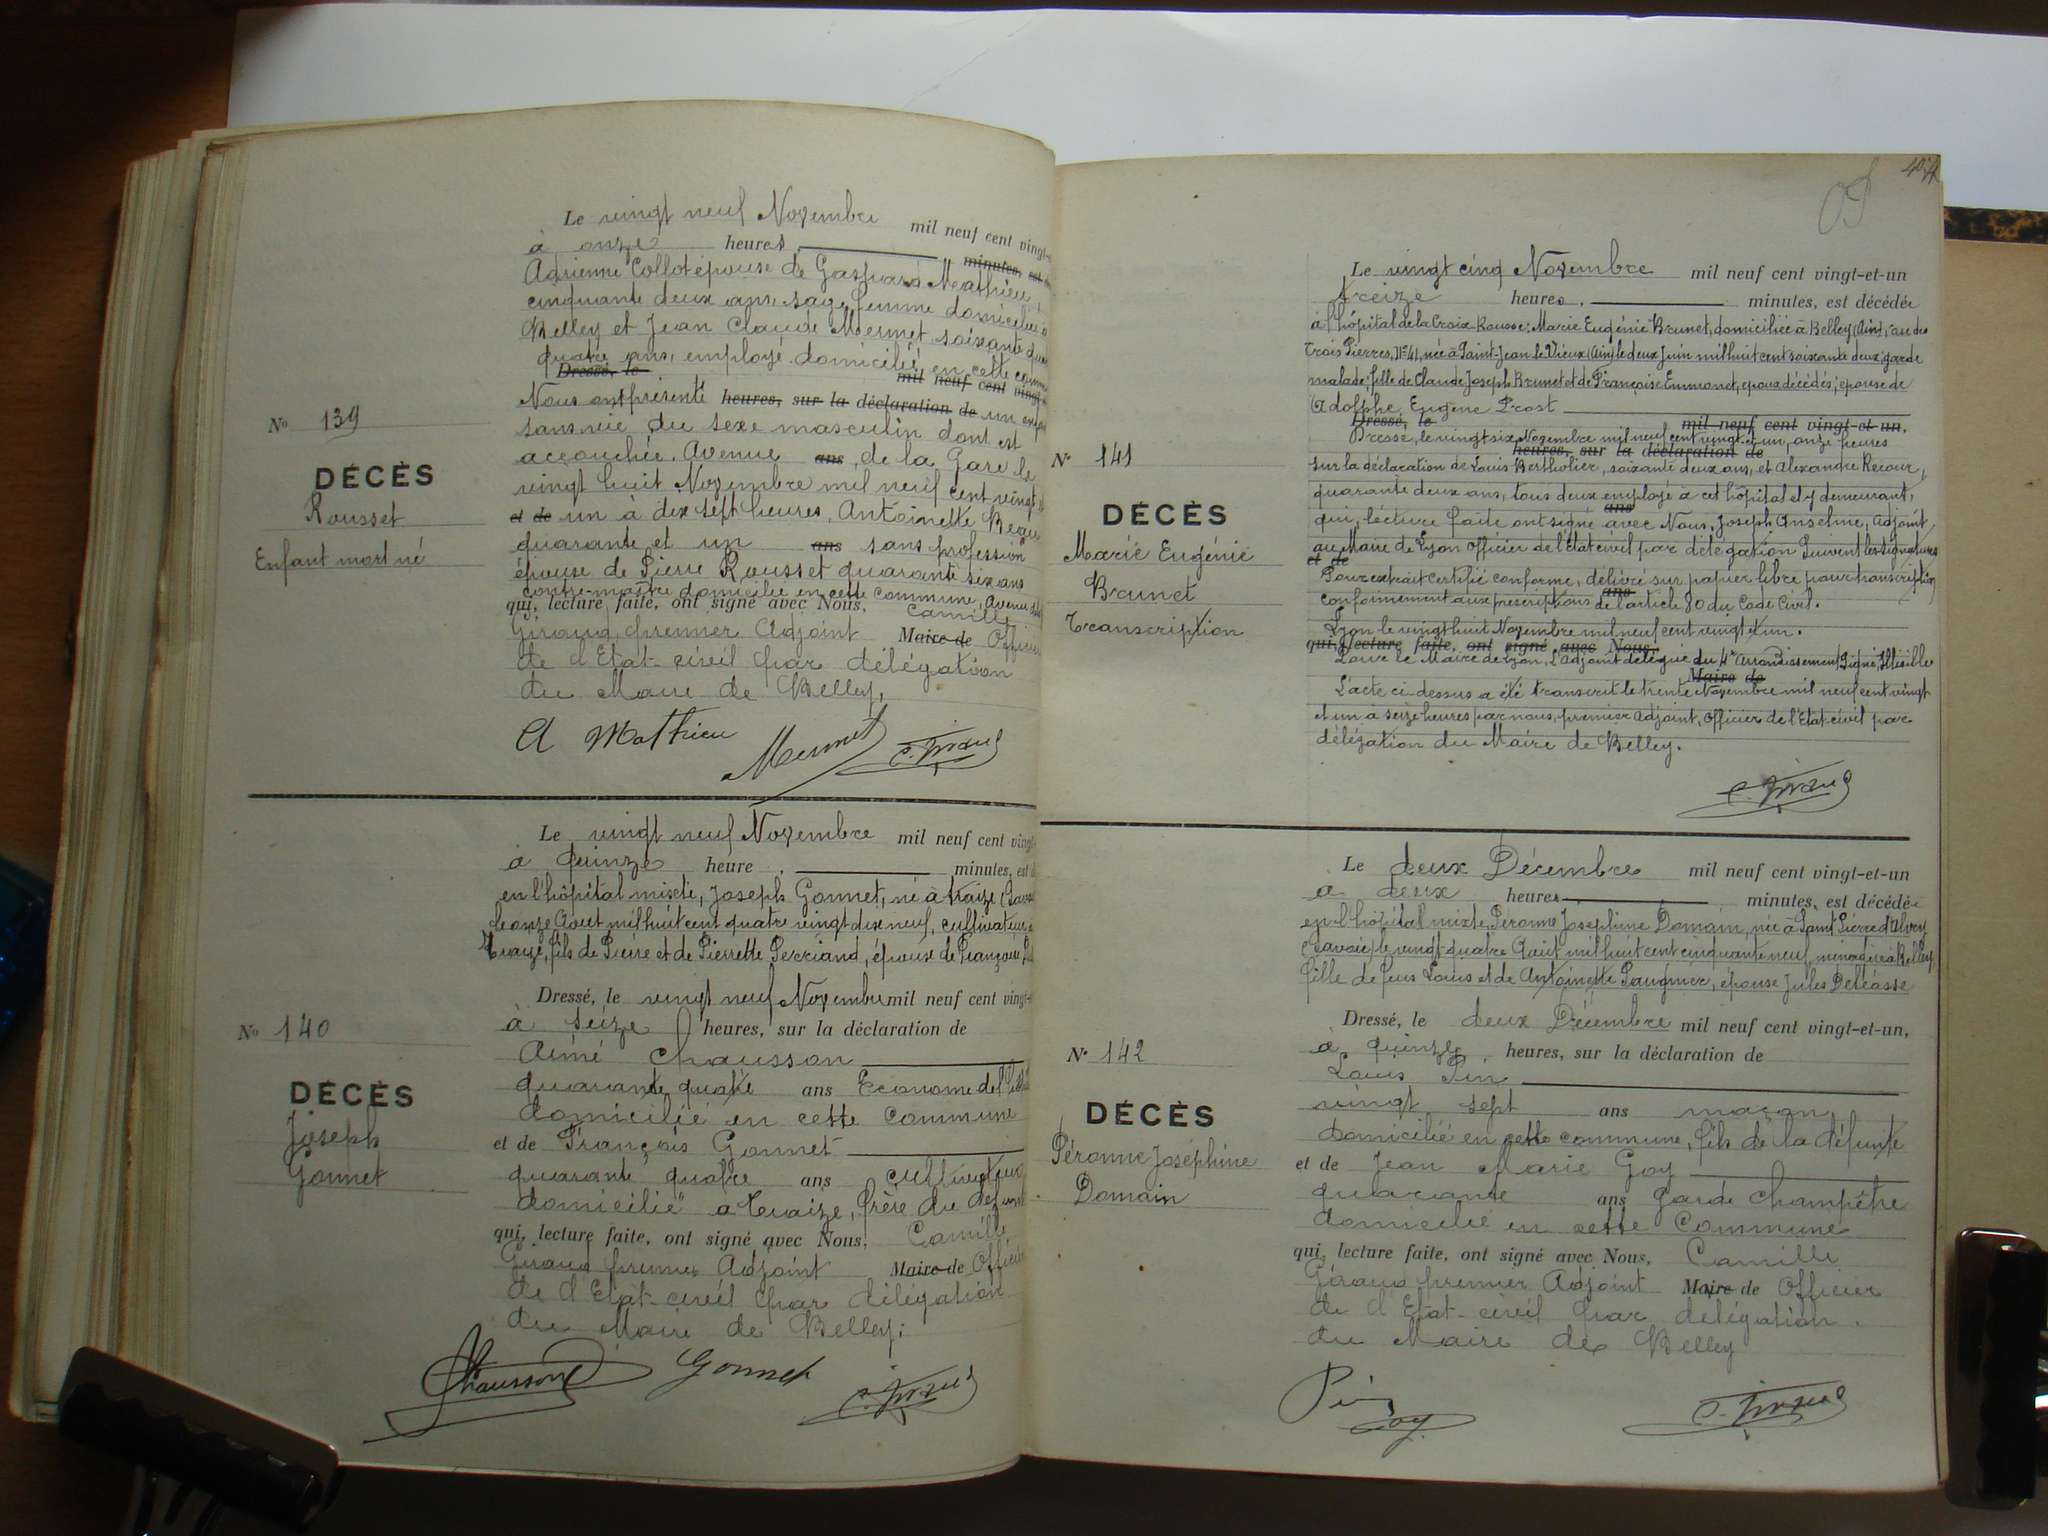 Le vingt neuf Novembre mil neuf cent vingt-
à onze heures, minutes, est
Adrienne Collot épouse de Gaspard Mathieu,
cinquante deux ans, sage femme domiciliée à
Belley et Jean Claude Mermet soixante
quatre ans, employé domicilié en cette
Dressé, le mil neuf cent vingt-
Nous ont présenté heures, sur la déclaration de un
sans vie du sexe masculin dont est
accouchée, Avenue ans, de la Gare le
vingt huit Novembre mil neuf cent vingt
et de un à dix sept heures, Antoinette
quarante et un ans sans profession
épouse de Pierre Rousset quarante six ans
contre-maître domicilié en cette commune, avenue
qui, lecture faite, ont signé avec Nous, Camille
Giraud premier Adjoint Maire de
de l'Etat-civil par délégation
du Maire de Belley,
No 139
DÉCÈS
Rousset
Enfant mort né
A Mathieu
Mermet
C. Giraud
Le vingt neuf Novembre mil neuf cent
à quinze heure, minutes, est
en l'hôpital mixte, Joseph Gonnet, né à Traize
le onze Aout mil huit cent quatre vingt dix neuf, cultivateur
Traize, fils de Pierre et de Pierrette Perriand, épouse de Françoise
Dressé, le vingt neuf Novembre mil neuf cent vingt-
à seize heures, sur la déclaration de
Aimé Chausson
quarante quatre ans Econome de
domicilié en cette commune
et de François Gonnet
quarante quatre ans cultivateur
domicilié à Traize, frère du
qui, lecture faite, ont signé avec Nous, Camille
Giraud premier Adjoint Maire de
de l'Etat-civil par délégation
du Maire de Belley;
No 140
DÉCÈS
Joseph
Gonnet
Chausson
Gonnet
C. Giraud
Le vingt cinq Novembre mil neuf cent vingt-et-un
treize heures, minutes, est décédée
à l'hôpital de la Croix-Rousse: Marie Eugénie Brunet, domiciliée à Belley (Ain), rue des
trois Pierres, No 41, née à Saint-Jean le Vieux (Ain) le deux Juin mil huit cent soixante deux, garde
malade; fille de Claude Joseph Brunet et de Françoise Emmonet, epoux décédés; epouse de
Adolphe Eugène Prost
Dressé, le mil neuf cent vingt-et-un,
Dressé, le vingt six Novembre mil neuf cent vingt et un, onze heures
heures, sur la déclaration de
sur la déclaration de Louis Bertholier, soixante deux ans, et Alexandre Recour,
quarante deux ans, tous deux employé à cet hôpital et y demeurant,
ans
qui, lecture faite ont signé avec Nous, Joseph Anselme, Adjoint
au Maire de Lyon Officier de l'Etat civil par délégation Suivent les signatures
et de
Pour extrait certifié conforme, délivré sur papier libre pour transcription
ans
conformément aux prescriptions de l'article 80 du Code Civil.
Lyon le vingt huit Novembre mil neuf cent vingt et un.
qui, lecture faite, ont signé avec Nous,
Pour le Maire de Lyon, L'Adjoint délégué du 4e Arrondissement Signé, Illisible
Maire de
L'acte ci-dessus a été transcrit le trente Novembre mil neuf cent vingt
et un à seize heures par nous, premier adjoint, Officier de l'Etat-civil par
délégation du Maire de Belley.
No 141
DÉCÈS
Marie Eugénie
Brunet
Transcription
C. Giraud
Le deux Décembre mil neuf cent vingt-et-un
à deux heures minutes, est décédée
en l'hôpital mixte Péronne Joséphine Domain, née à Saint Pierre d'Alvey
(Savoie) le vingt-quatre Aout mil huit cent cinquante neuf, ménagère à Belley,
fille de feus Louis et de Antoinette Paugmier, épouse Jules Deléasse
Dressé, le deux Décembre mil neuf cent vingt-et-un,
à quinze heures, sur la déclaration de
Louis Pin
vingt sept ans maçon
domicilié en cette commune, fils de la défunte
et de Jean Marie Goy
quarante ans Garde champêtre
domicilié en cette Commune
qui, lecture faite, ont signé avec Nous, Camille
Giraud premier Adjoint Maire de Officier
de l'Etat-civil par délégation
du Maire de Belley
No 142
DÉCÈS
Péronne Joséphine
Domain
Pin
Goy
C. Giraud